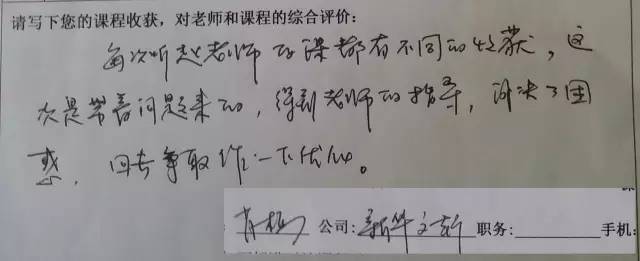 请写下您的课程收获，对老师和课程的综合评价：
每次听赵老师的课都有不同的收获，这
次是带着问题来的，得到老师的指导，解决了困
惑，回去争取作一下优化。
公司：新华文轩 职务： 手机：